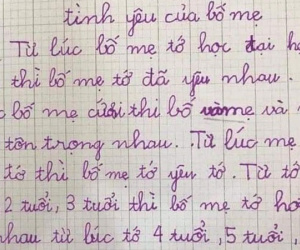 tình yêu của bố mẹ
Từ lúc bố mẹ tớ học đại
thì bố mẹ tớ đã yêu nhau.
bố mẹ cưới thì bố và
tôn trọng nhau. Từ lúc mẹ
tớ thì bố mẹ tớ yêu tớ. Từ tớ
2 tuổi, 3 tuổi thì bố mẹ tớ
nhau từ lúc tớ 4 tuổi, 5 tuổi,